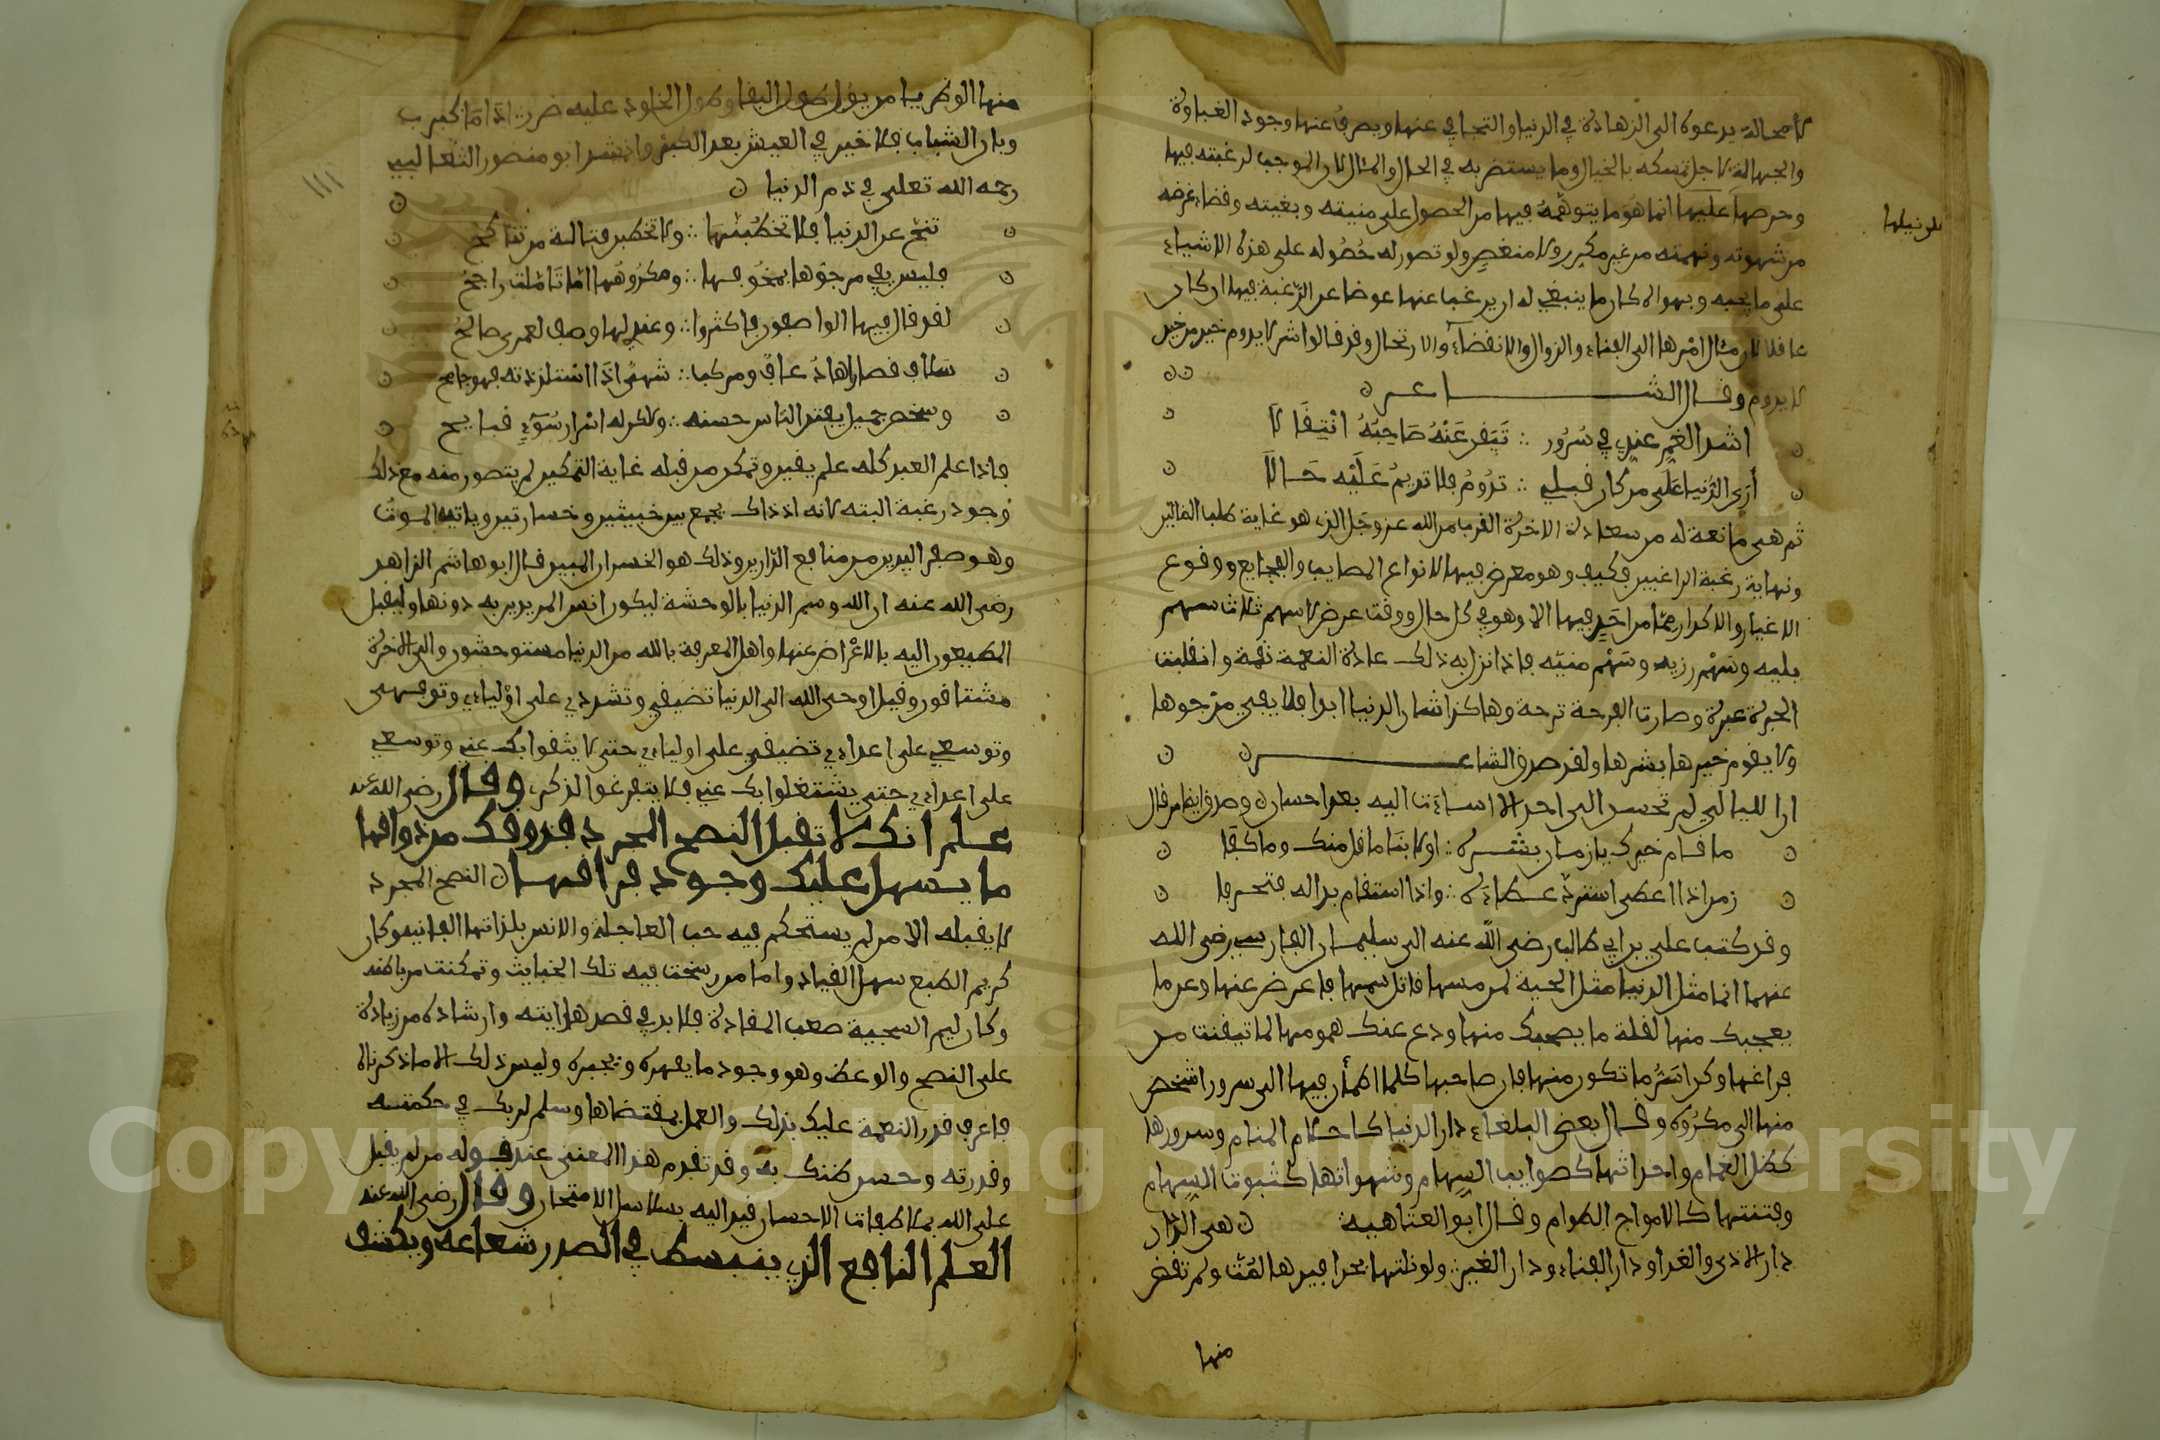 لا محالة يدعوه الى الزهادة في الدنيا والتجافي عنها ويصرف عنها وجود الغباوة
والجهالة لاجل تمسكه بالخيال وما يستضر به في الحال والمئال لان الموجب لرغبته فيها
وحرصه عليها انما هو ما يتوهمه فيها من الحصول على منيته وبغيته وقضاء غرضه
من شهوته ونهمته من غير مكدر ولا منغص ولو تصور له حصوله على هذه الاشياء
على ما يحبه ويهواه لكان ما ينبغي له ان يرغب عنها عوضا عن الرغبة فيها ان كان
عاقلا لان مئال امرها الى الفناء والزوال والانقضاء والارتحال وقد قالوا شر لا يدوم خير من خير
لا يدوم وقال الشاعر
اشد الغم عندي في سرور ∴ تيقن عنه صاحبه انتقالا
أرى الدنيا على من كان قبلي ∴ تدوم فلا تديم عليه حالا
ثم هي مانعة له من سعادة الاخرة القرب من الله عز وجل الذي هو غاية طلب الطالبين
ونهاية رغبة الراغبين فكيف وهو معرض فيها لانواع المصايب والفجايع ووقوع
الاغيار والاكدار فما من احد فيها الا وهو في كل حال ووقت عرض لاسهم ثلاث سهم
بلية وسهم رزية وسهم منية فاذا نزل به ذلك عادة النعمة نقمة وانقلبت
الحبرة عبرة وصارت الفرحة ترحة وهاكذا شان الدنيا ابدا فلا يفي مرجوها
ولا يقوم خيرها بشرها ولقد صدق الشاعر
ان الليالي لم تحسن الى احد الا اساءت اليه بعد احسان وصدق ايضا من قال
ما قام خيرك يا زمان بشره ∴ اولا بنا ما قل منك وما كفا
زمن اذا اعطى استرد عطاءه ∴ واذا استقام بدا له فتحرفا
وقد كتب علي بن ابي طالب رضي الله عنه الى سليمان الفارسي رضي الله
عنهما انما مثل الدنيا مثل الحية لين مسها قاتل سمها فاعرض عنها وعن ما
يعجبك منها لقلة ما يصحبك منها ودع عنك همومها لما تيقنت من
فراغها وكن اسر ما تكون منها فان صاحبها كلما اطمأن فيها الى سرور اشخص
منها الى مكروه وقال بعض البلغاء دار الدنيا كاحلام المنام وسرورها
كظل الغمام واحداثها كصوايب السهام وشهواتها كشوب السهام
وفتنتها كالامواج الطوام وقال ابو العتاهية هي الدار
دار الاذى والقذا ودار الفناء ودار الغير ولو نلتها بحذافيرها لمت ولم تقض
منها
بدنياها
منها الوطر يا من يؤمل طول البقا وطول الخلود عليه ضرر اذا ما كبرت
وبان الشباب فلا خير في العيش بعد الكبر وانشد ابو منصور الثعالبي
رحمه الله تعلى في ذم الدنيا
تنح عن الدنيا فلا تخطبنها ∴ ولا تخطبن قتالة من تناكح
فليس يفي مرجوها بمخوفها ∴ ومكروهها اما تاملت راجح
لقد قال فيها الواصفون فاكثروا ∴ وعندي لها وصف لعمري صالح
سلاف قصاراها ذعاف ومركب ∴ شهي اذا استلذذته فهو جامح
وشخص جميل يفتن الناس حسنه ∴ ولاكن له اسرار سوء قبايح
فاذا علم العبد كله علم يقين وتمكن من قبله غاية التمكين لم يتصور منه مع ذلك
وجود رغبة البته لانه اذ ذاك يجمع بين خبيثين وخسارتين وياته الموت
وهو صفر اليدين من منافع الدارين وذلك هو الخسران المبين قال ابو هاشم الزاهد
رضي الله عنه ان الله وسم الدنيا بالوحشة ليكون انس المريدين به دونها وليقبل
المطيعون اليه بالاعراض عنها واهل المعرفة بالله من الدنيا مستوحشون والى الاخرة
مشتاقون وقيل اوحى الله الى الدنيا تضيقي وتشددي على اوليائي وترفهي
وتوسعي على اعداءي تضيقي على اولياءي حتى لا يثقوا بك عني وتوسعي
على اعداءي حتى يشتغلوا بك عني فلا يتفرغوا لذكري وقال رضي الله عنه
علم انك لا تقبل النصح المجرد فذوقك من ذواقها
ما يسهل عليك وجود فراقها النصح المجرد
لا يقبله الا من لم يستحكم فيه حب العاجلة والانس بلذاتها الفانية وكان
كريم الطبع سهل القياد واما من رسخت فيه تلك الخبايث وتمكنت من باطنه
وكان ليم السجية صعب المقادة فلا بد في قصد هدايته وارشاده من زيادة
على النصح والوعظ وهو وجود ما يقهره ويجبره وليس ذلك الا ما ذكرناه
فاعرف قدر النعمة عليك بذلك والعمل بمقتضاها وسلم لربك في حكمته
وقدرته وحسن ظنك به وقد تقدم هذا المعنى عند قوله من لم يقبل
على الله بملاطفات الاحسان قيد اليه بسلاسل الامتحان وقال رضي الله عنه
العلم النافع الذي ينبسط في الصدر شعاعه ويكشف
١١١
Copyright © King Saud University